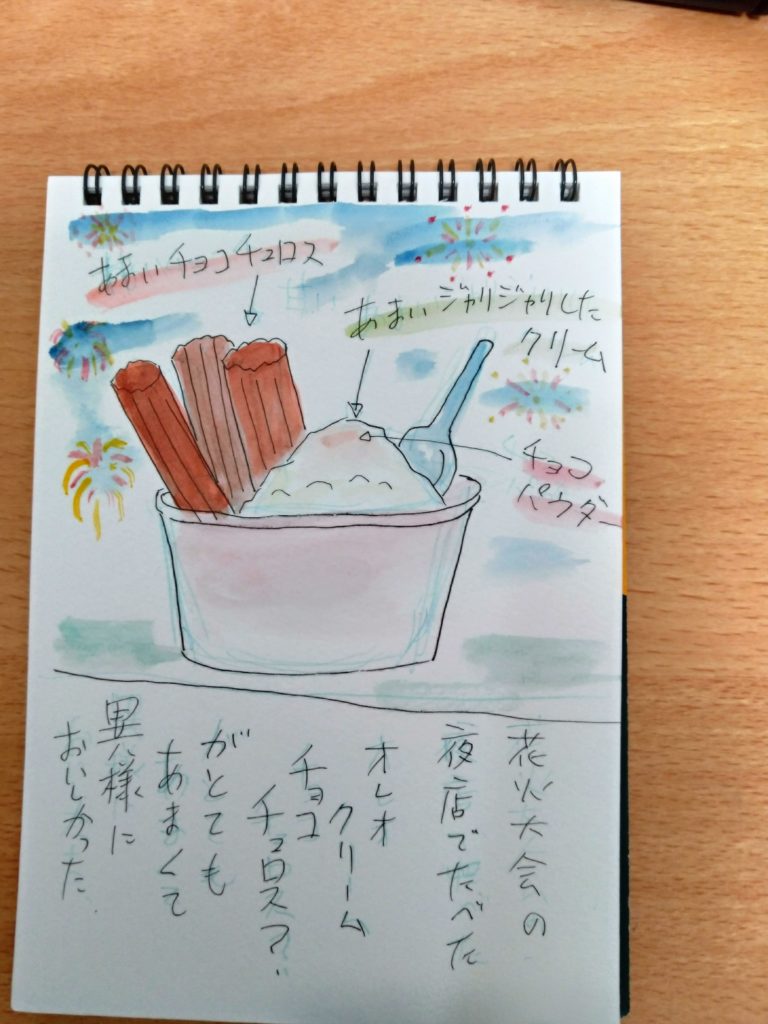 あまいチョコチュロス
あまいジャリジャリした
クリーム
チョコ
パウダー
花火大会の
夜店でたべた
オレオ
クリーム
チョコ
チュロス?
がとても
あまくて
異様に
おいしかった